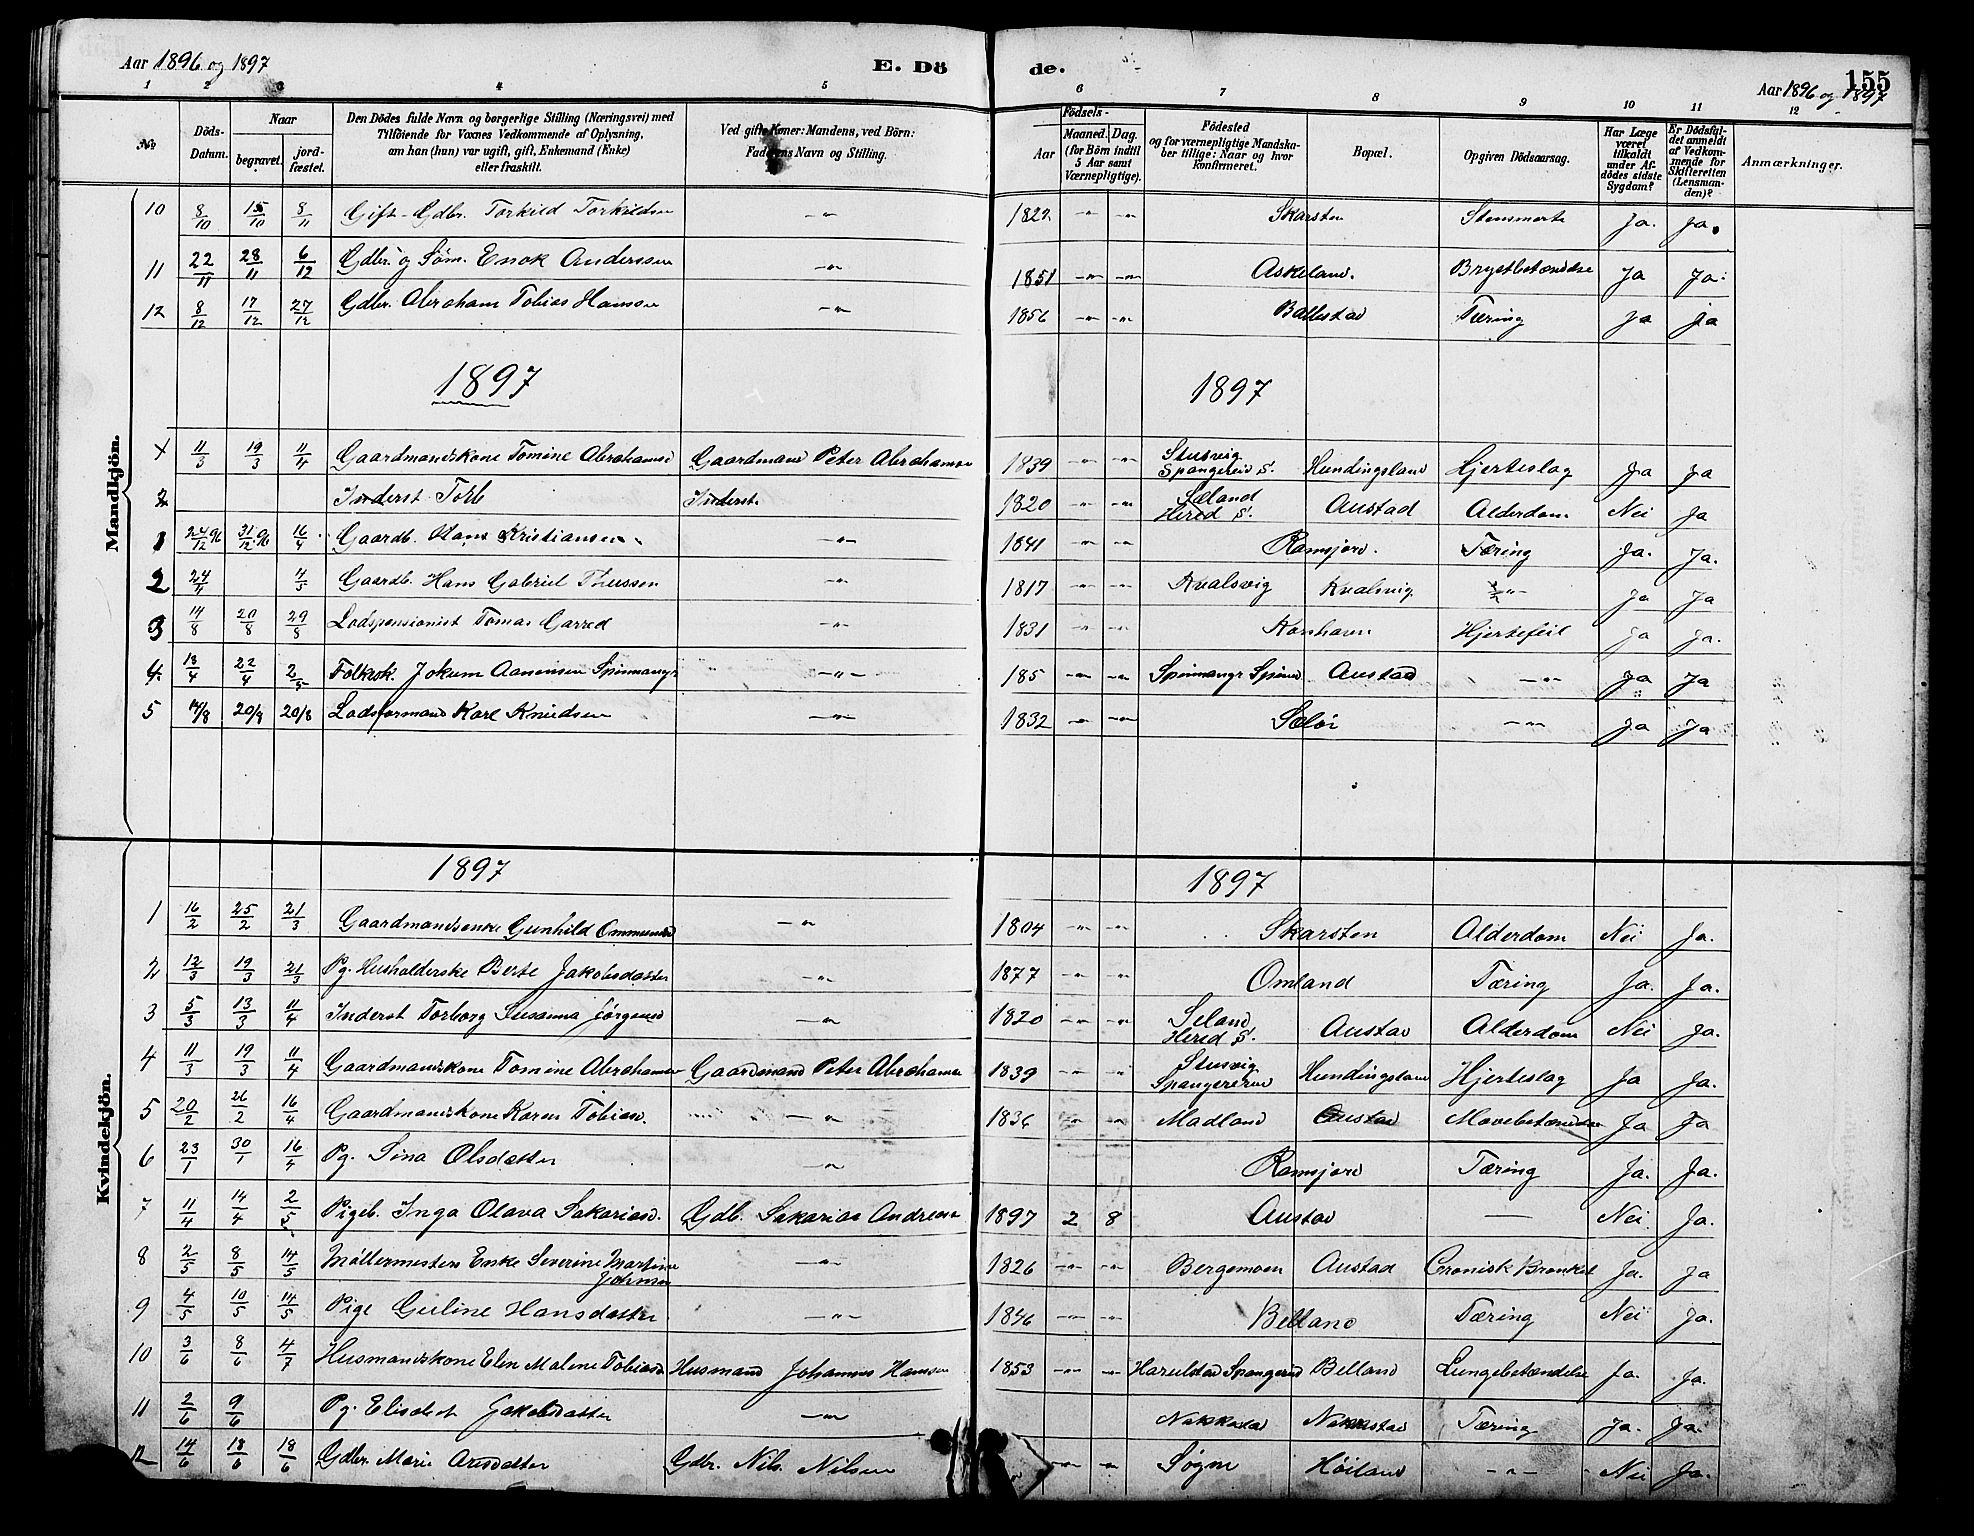 Aar 1896 og 1897 E. Dö de. Aar 1896 og 1897 155
1 2 3 4 5 6 7 8 9 10 11 12
No Döds-Datum. Naar begravet. jord-fæstet. Den Dödes fulde Navn og borgerlige Stilling (Næringsvei) med Tilföiende for Voxnes Vedkommende af Oplysning, om han (hun) var ugift, gift, Enkemand (Enke) eller fraskilt. Ved gifte Koner: Mandens, ved Börn: Faderens Navn og Stilling. Födsels- Aar Maaned. Dag. (for Börn indtil 5 Aar samt Værnepligtige). Födested og for værnepligtige Mandskaber tillige: Naar og hvor konfirmeret. Bopæl. Opgiven Dödsaarsag. Har Læge været tilkaldt under Afdödes sidste Sygdom? Er Dödsfaldet anmeldt af Vedkommende for Skifteretten (Lensmanden)? Anmærkninger.
Mandkjön.
10 8/10 15/10 8/11 Gift-Gdbr. Torkild Torkildsen -"- 1822 -"- -"- Skarsten Ja. Ja.
11 22/11 28/11 6/12 Gdbr. og Søm. Enok Anderssen -"- 1851 -"- -"- Askeland. Brystbetændelse Ja Ja.
12 8/12 17/12 27/12 Gdbr. Abraham Tobias Hansen -"- 1856 -"- -"- Ballestad Tæring Ja Ja
1897 1897
11/3 19/3 11/4 Gaardmandskone Tomine Abrahamse Gaardmand Peter Abrahamse 1839 -"- -"- Stusvig Spangereid S. Hundingsland Hjerteslag Ja Ja
2 Inderst Torb Inderst 1820 -"- -"- Sæland Hered S. Austad Alderdom Nei Ja
1 24/12 96 31/12 96 16/4 Gaardb. Hans Kristiansen -"- 1841 -"- -"- Ramsjord. Tæring Ja. Ja.
2 24/4 4/5 Gaardb. Hans Gabriel -"- 1817 -"- -"- Kvalsvig Kvalsvig -"- Ja Ja
3 14/8 20/8 29/8 Lodspensionist Tomas Garred -"- 1831 -"- -"- Korshavn Hjertefeil Ja Ja.
4. 13/4 22/4 2/5 Folkesk. Jokum Aanensen Spinmangr -"- 185 -"- -"- Spinmangr Spind Austad -"- Ja Ja
5 14/8 20/8 20/8 Lodsformand Karl Knudsen -"- 1832 -"- -"- Sælør -"- Ja Ja
Kvindekjön.
1897 1897
1 16/2 25/2 21/3 Gaardmandsenke Gunhild Ommunds -"- 1804 -"- -"- Skarsten Alderdom Nei Ja.
2 12/3 19/3 21/3 Pg. Husholderske Berte Jakobsdatter -"- 1877 -"- -"- Omland Tæring Ja. Ja.
3 5/3 13/3 11/4 Inderst Torborg Susanna Jørgensd -"- 1820 -"- -"- Seland Hered S. Austad Alderdom Nei Ja.
4 11/3 19/3 11/4 Gaardmandskone Tomine Abrahamsen Gaardmand Peter Abrahamse 1839 -"- " Stusvig Spangereid Hundingsland Hjerteslag Ja Ja.
5 20/2 26/2 16/4 Gaardmandskone Karen Tobiasd. -"- 1836 -"- -"- Madland Austad Mavebetændelse Ja Ja
6 23/1 30/1 16/4 Pg. Sina Olsdatter -"- Ramsjord Tæring Ja. Ja.
7 11/4 14/4 2/5 Pigeb. Inga Olava Sakariasd. Gdb. Sakarias Andreas 1897 2 8 Austad — Nei Ja.
8 2/5 8/5 14/5 Møllermesters Enke Severine Martine Johnsen -"- 1826 -"- -"- Bergemoen Austad Cronisk Bronket Ja. Ja
9 4/5 10/5 14/5 Pige Guline Hansdatter -"- 1846 -"- -"- Belland Tæring Nei Ja.
10 3/6 8/6 4/7 Husmandskone Elen Malene Tobiasd Husmand Johannes Hansen 1853 -"- -"- Harelstad Spangereid Belland Lungebetændelse Ja. Ja.
11 2/6 9/6 Pg. Elisabet Jakobsdatter -"- Nakkestad Nakkestad Tæring Ja. Ja.
12 14/6 18/6 18/6 Gdbr. Marie Aresdatter Gdbr. Nils Nilsen -"- -"- Søgne Høiland -"- Nei Ja.